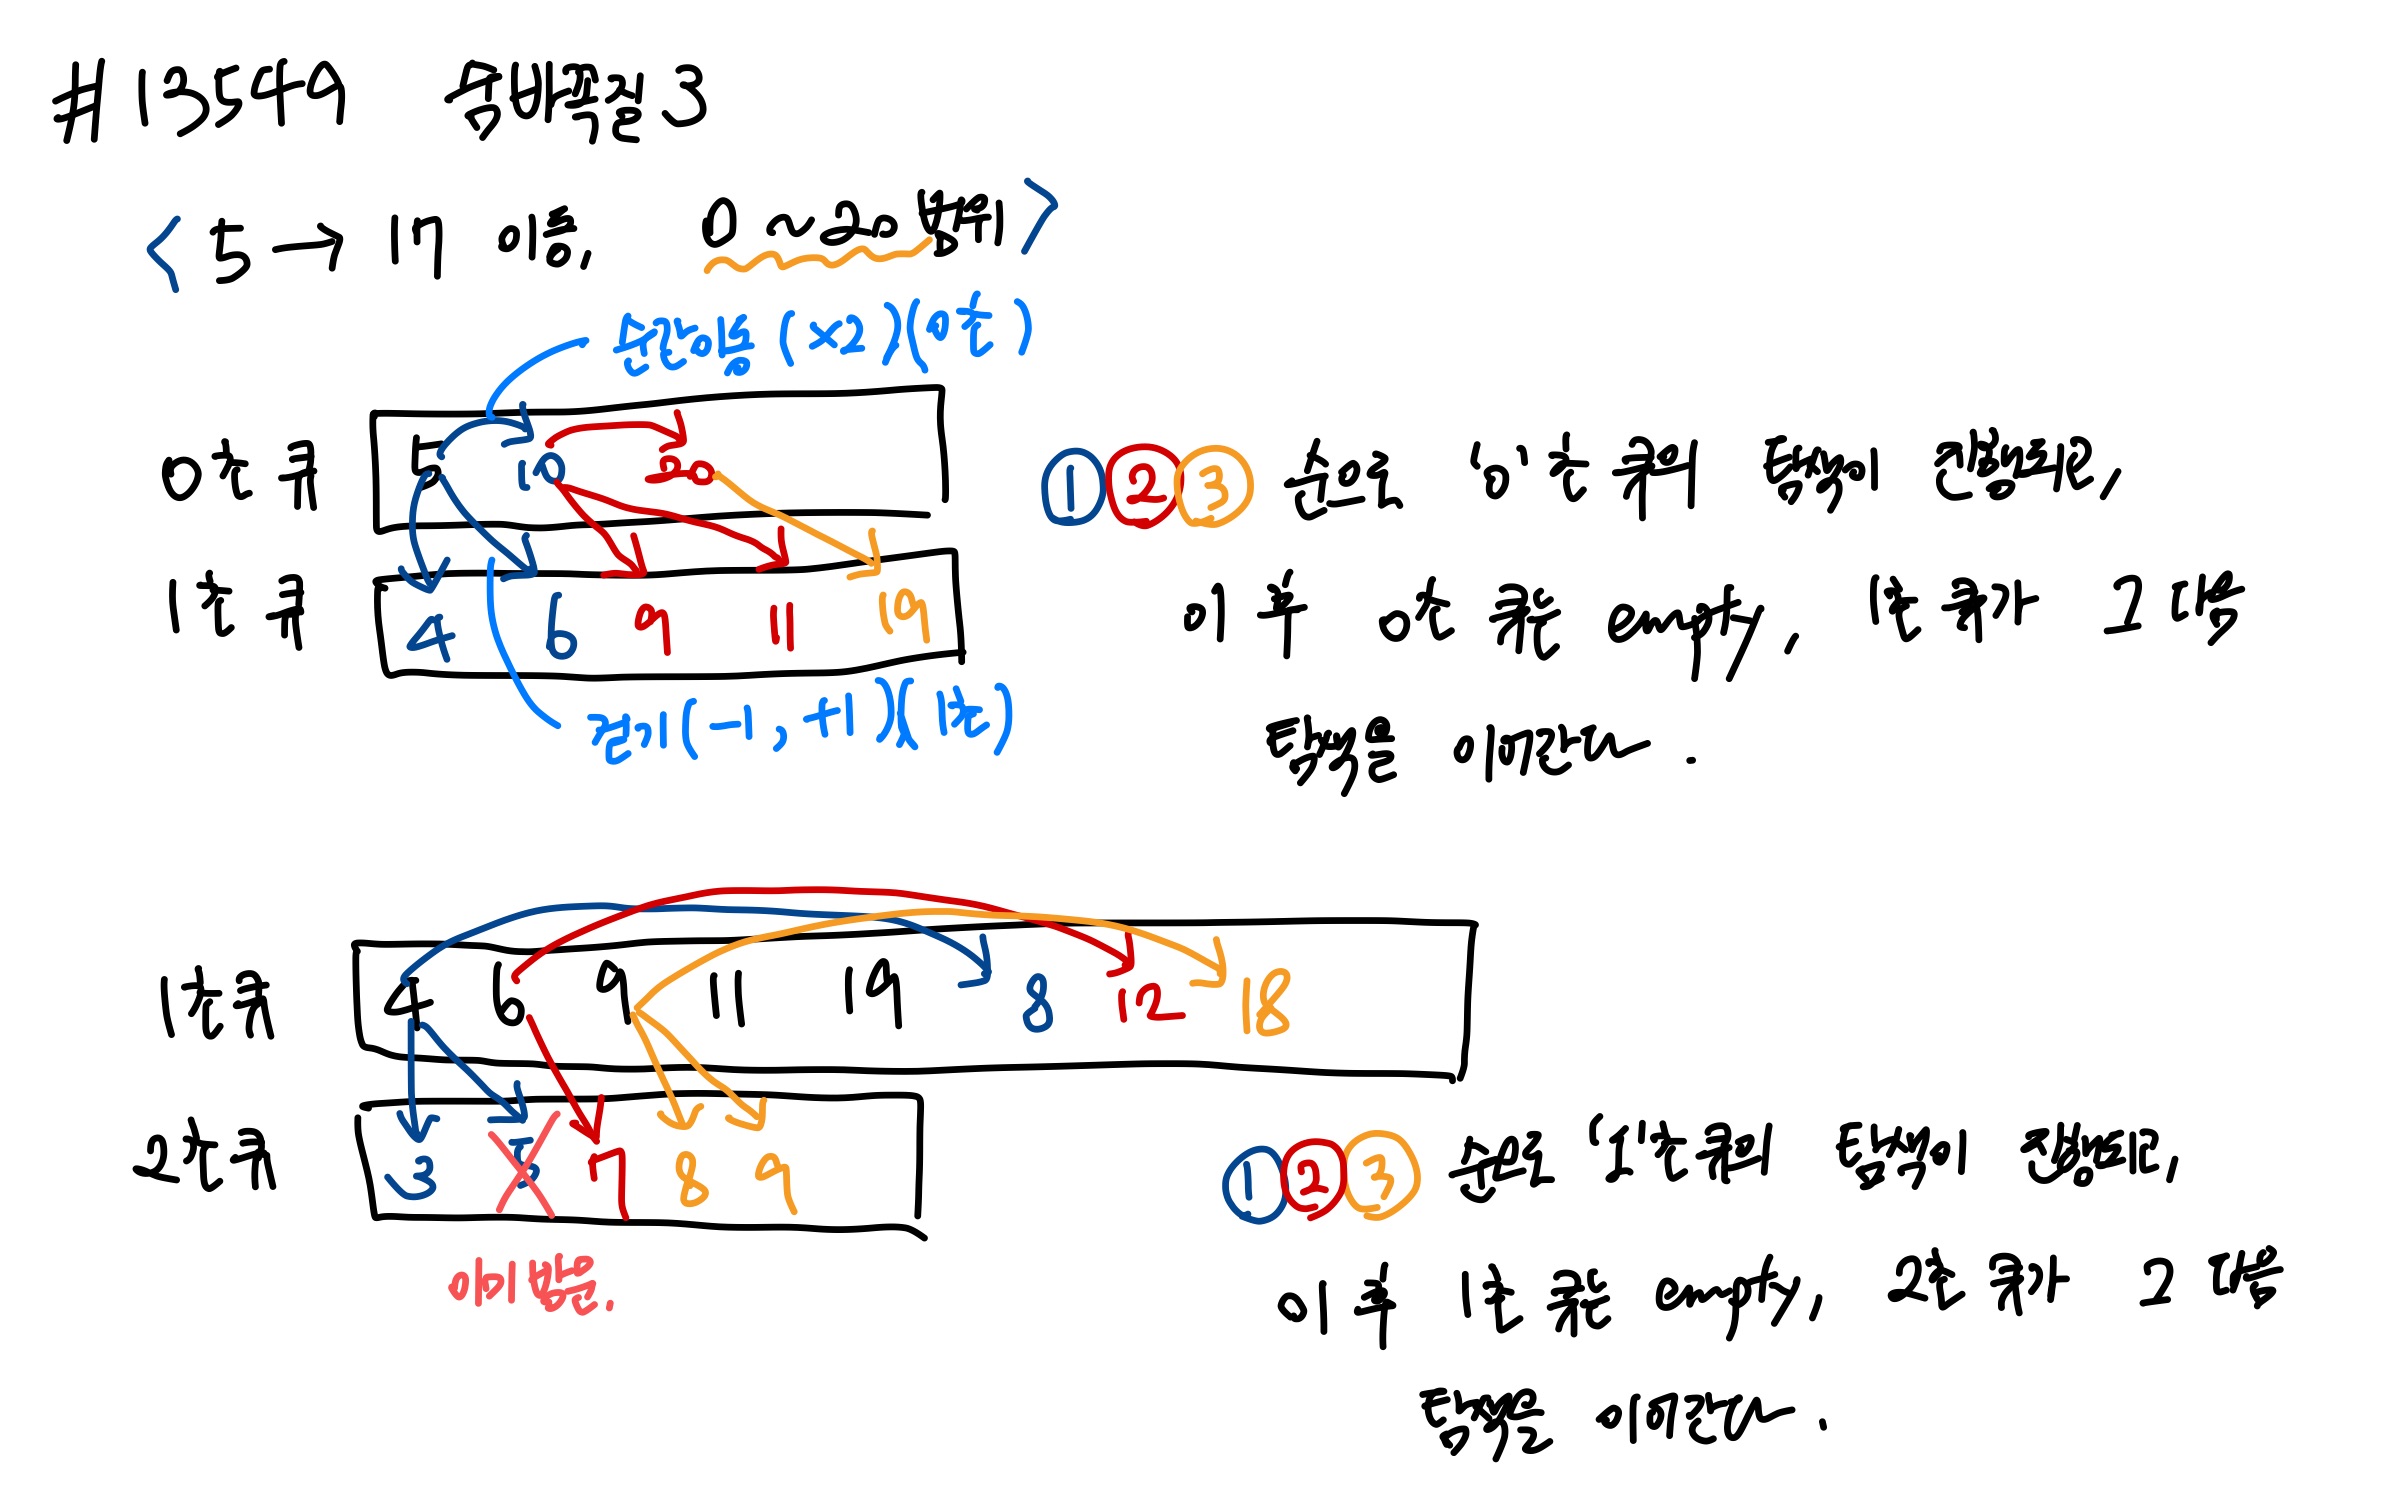 #13549 숨바꼭질 3
< 5 → 17 이동, 0 ~ 20 범위 >
순간이동 (×2)(0초)
0초 큐 5 10 20
1초 큐 4 6 9 11 19
걷기(-1, +1)(1초)
① ② ③ 순으로 '0'초 큐의 탐색이 진행되고,
이후 0초 큐는 empty, 1초 큐가 그 다음
탐색을 이어간다.
1초큐 4 6 9 11 19 8 12 18
2초큐 3 5 7 8 9
이미 방문.
① ② ③ 순으로 '1'초 큐의 탐색이 진행되고,
이후 1초 큐는 empty, 2초 큐가 그 다음
탐색을 이어간다.